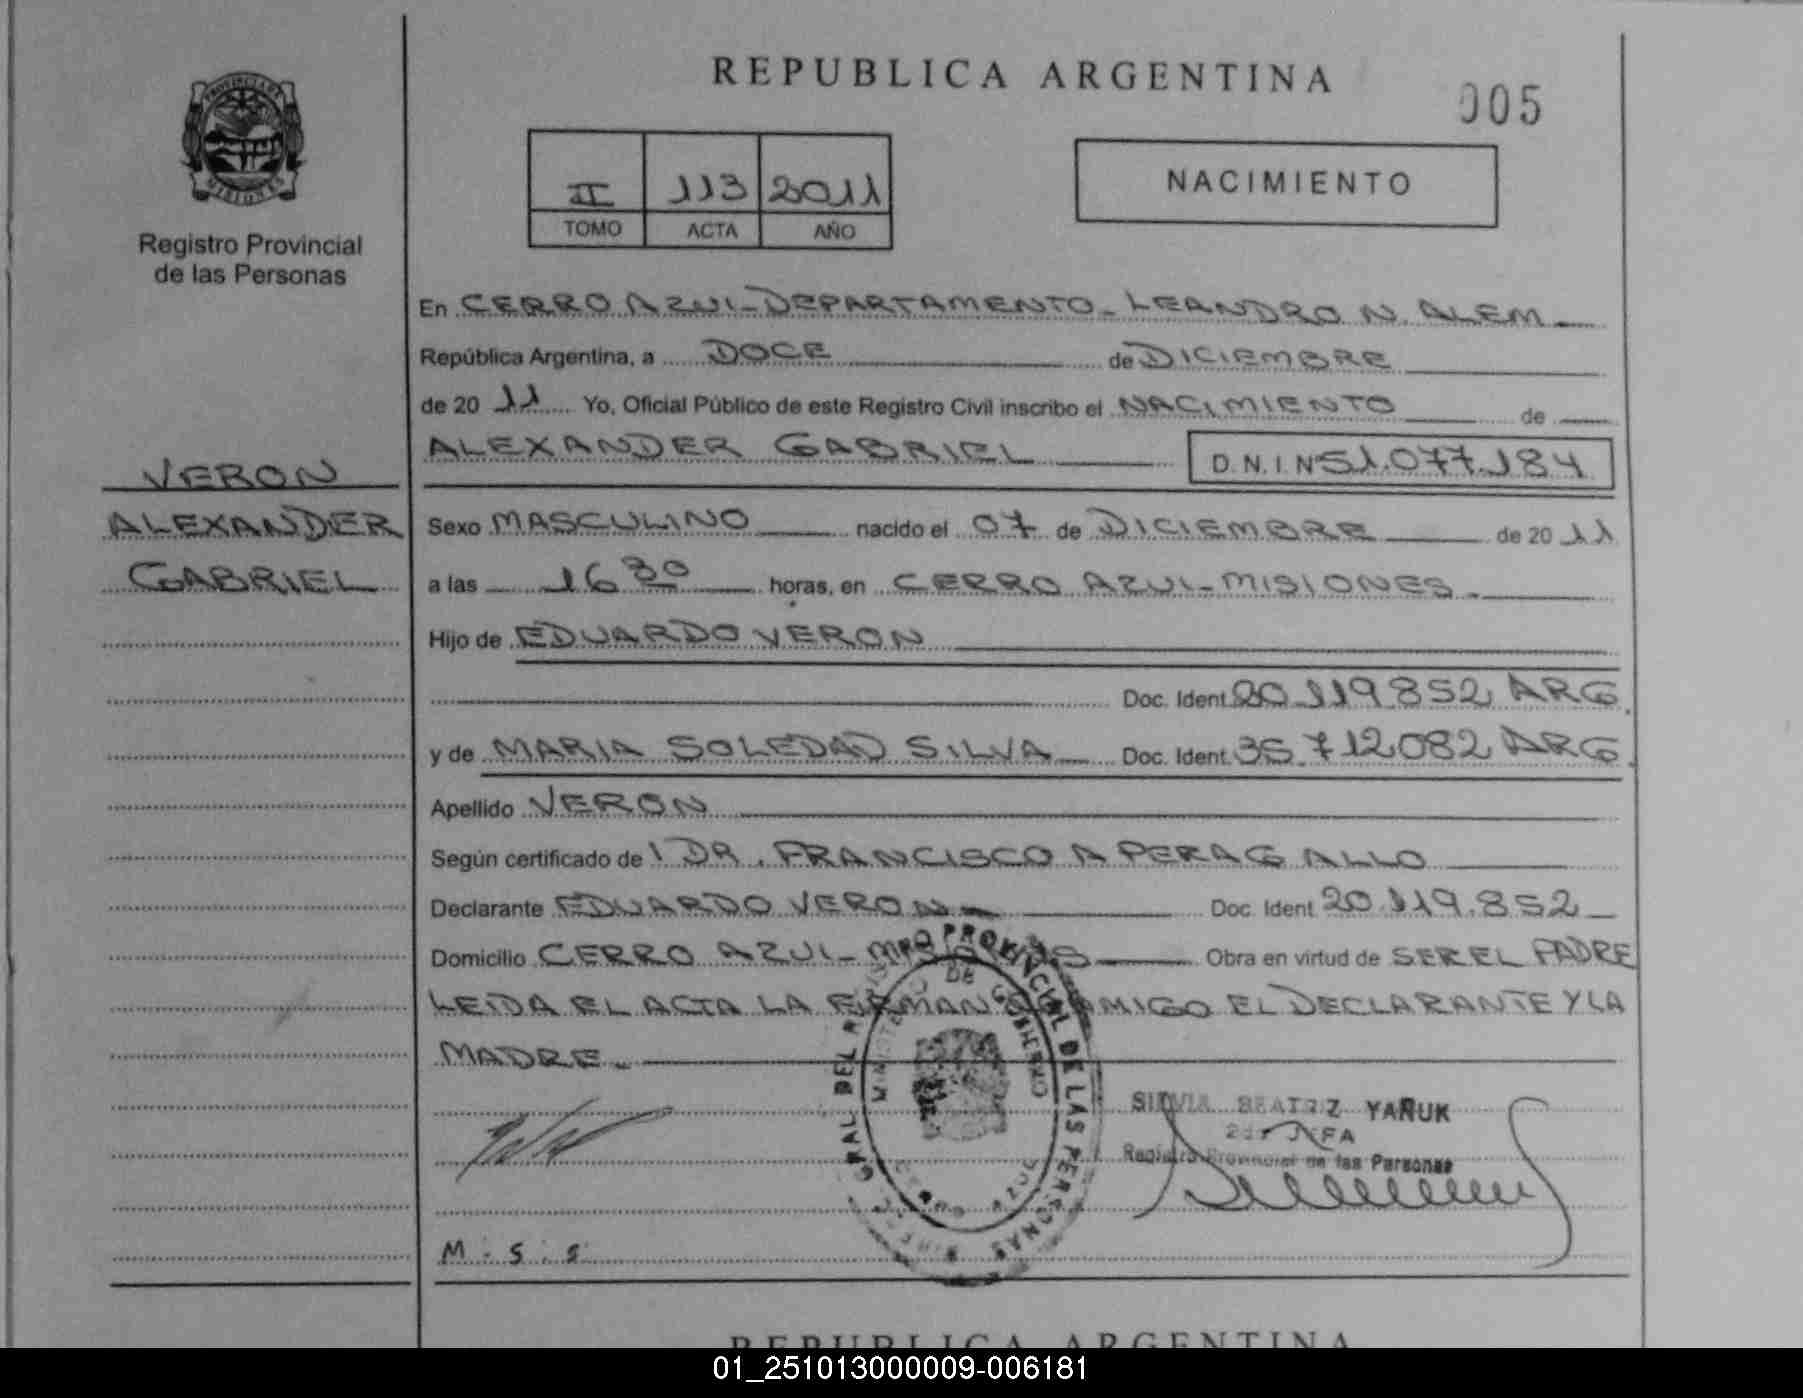 REPUBLICA ARGENTINA
005
PROVINCIA DE
MISIONES
Registro Provincial
de las Personas
II 113 2011
TOMO ACTA AÑO
NACIMIENTO
En CERRO AZUL-DEPARTAMENTO-LEANDRO N. ALEM
República Argentina, a DOCE de DICIEMBRE
de 20 11 Yo, Oficial Público de este Registro Civil inscribo el NACIMIENTO de
ALEXANDER GABRIEL D.N.I.N 51.077.184
VERON
ALEXANDER
GABRIEL
Sexo MASCULINO nacido el 07 de DICIEMBRE de 20 11
a las 16 30 horas, en CERRO AZUL-MISIONES.
Hijo de EDUARDO VERON
Doc. Ident. 20.119.852 ARG.
y de MARIA SOLEDAD SILVA Doc. Ident. 35.712.082 ARG.
Apellido VERON
Según certificado de l DR. FRANCISCO A PERAGALLO
Declarante EDUARDO VERON Doc. Ident. 20.119.852
Domicilio CERRO AZUL-MISIONES Obra en virtud de SER EL PADRE
LEIDA EL ACTA LA FIRMAN CONMIGO EL DECLARANTE Y LA
MADRE.
GRAL DEL REGISTRO PROVINCIAL DE LAS PERSONAS
MINISTERIO DE GOBIERNO
CERRO AZUL
SILVIA BEATRIZ YARUK
2da JEFA
Registro Provincial de las Personas
M. S. S.
REPUBLICA ARGENTINA
01_251013000009-006181